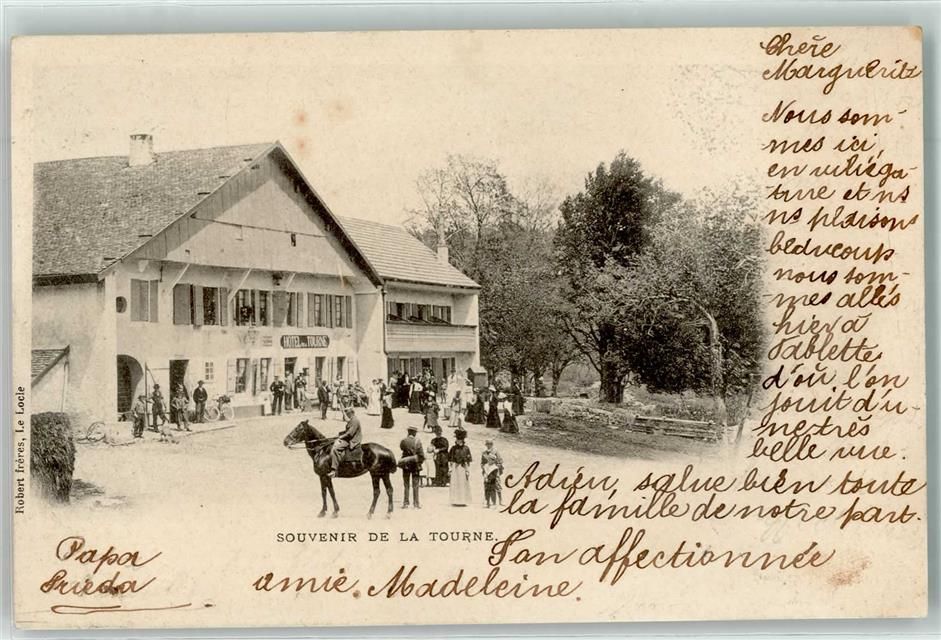 Chère
Marguerite
Nous som-
mes ici,
en villéga-
ture et ns
ns plaisons
beaucoup
nous som-
mes allés
hier à
Tablette
d'où l'on
jouit d'u-
ne très
belle vue.
Adieu, salue bien toute
la famille de notre part.
Ton affectionnée
amie. Madeleine.
Papa
Frieda
HÔTEL DE LA TOURNE
SOUVENIR DE LA TOURNE.
Robert frères, Le Locle